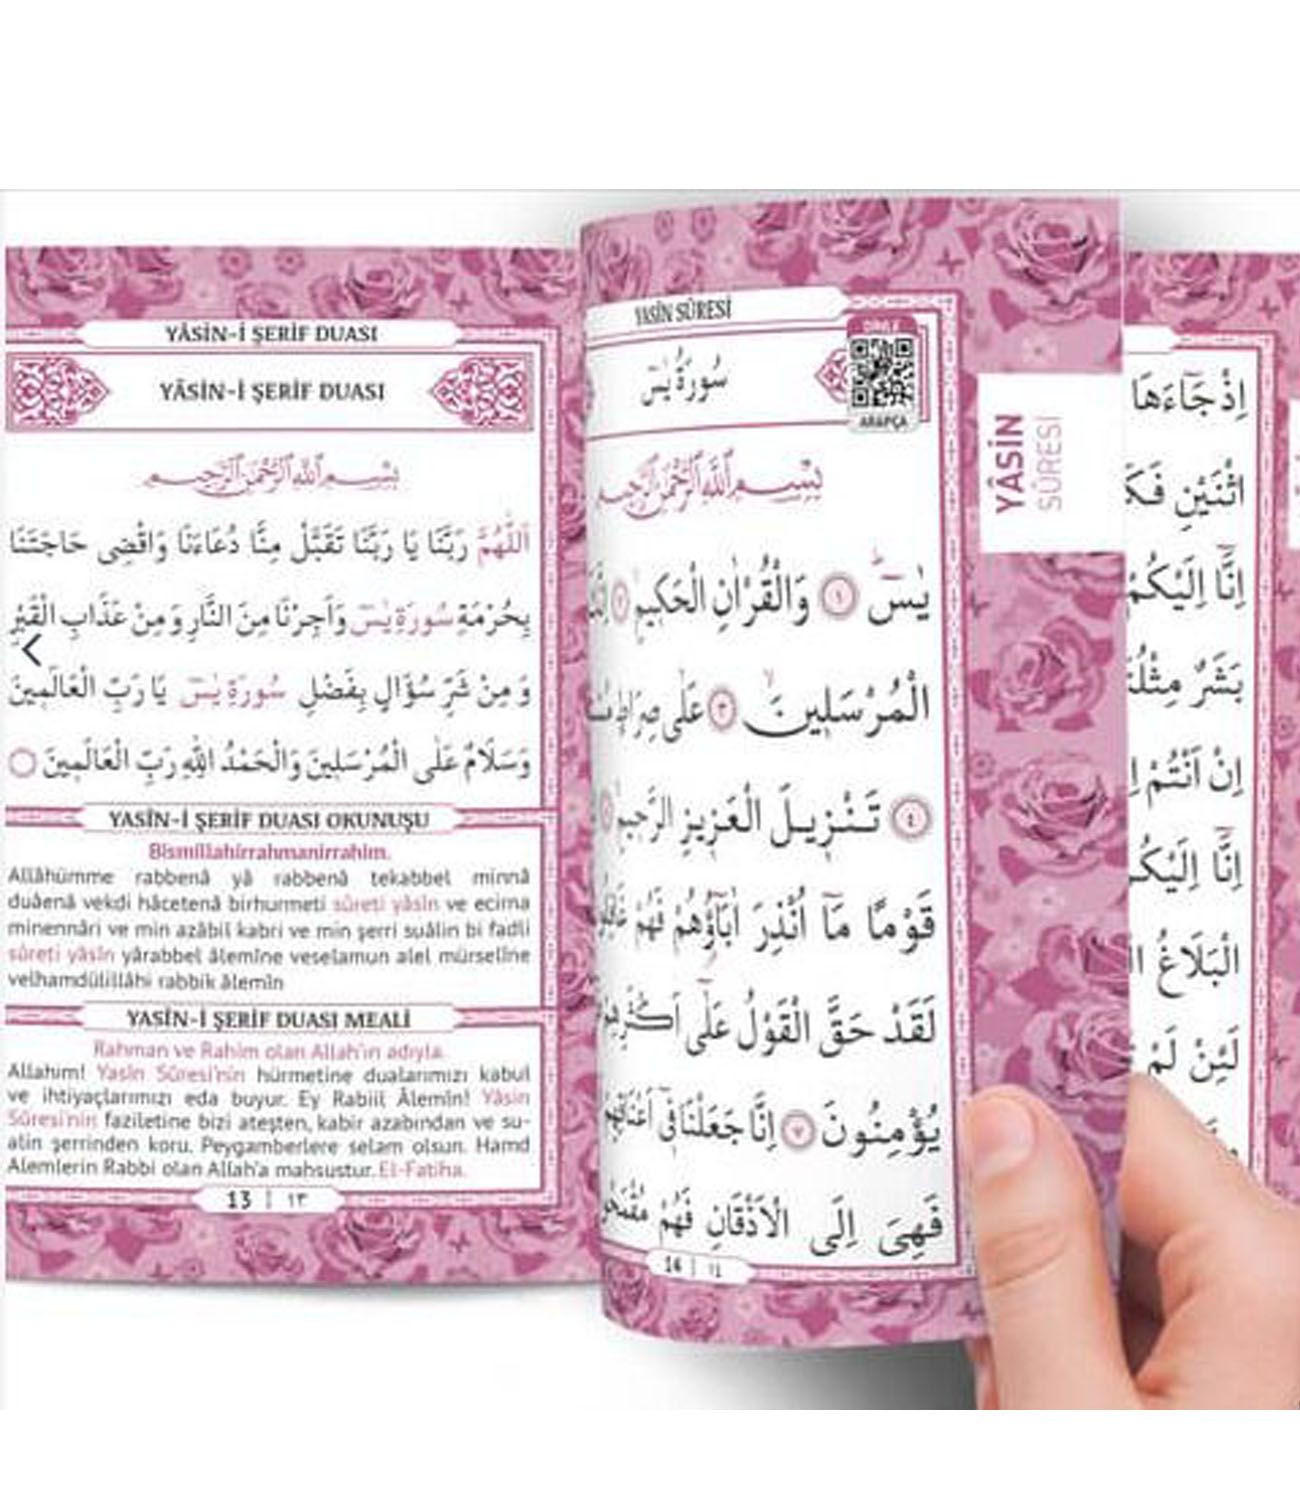 YÂSİN-İ ŞERİF DUASI
YÂSİN-İ ŞERİF DUASI
بِسْمِ اللهِ الرَّحْمٰنِ الرَّحِيمِ
اَللّٰهُمَّ رَبَّنَا يَا رَبَّنَا تَقَبَّلْ مِنَّا دُعَاءَنَا وَاقْضِى حَاجَتَنَا
بِحُرْمَةِ سُورَةِ يٰسٓ وَاَجِرْنَا مِنَ النَّارِ وَمِنْ عَذَابِ الْقَبْرِ
وَمِنْ شَرِّ سُؤَالٍ بِفَضْلِ سُورَةِ يٰسٓ يَا رَبِّ الْعَالَمِينَ
وَسَلَامٌ عَلَى الْمُرْسَلِينَ وَالْحَمْدُ لِلّٰهِ رَبِّ الْعَالَمِينَ
YASİN-İ ŞERİF DUASI OKUNUŞU
Bismillahirrahmanirrahim.
Allâhümme rabbenâ yâ rabbenâ tekabbel minnâ
duâenâ vekdi hâcetenâ birhurmeti sûreti yâsîn ve ecirna
minennâri ve min azâbil kabri ve min şerri suâlin bi fadli
sûreti yâsîn yârabbel âlemîne veselamun alel mürselîne
velhamdülillâhi rabbik âlemîn
YASİN-İ ŞERİF DUASI MEALİ
Rahman ve Rahim olan Allah'ın adıyla.
Allahım! Yasin Sûresi'nin hürmetine dualarımızı kabul
ve ihtiyaçlarımızı eda buyur. Ey Rabiil Âlemîn! Yâsin
Sûresi'nin faziletine bizi ateşten, kabir azabından ve su-
alin şerrinden koru. Peygamberlere selam olsun. Hamd
Alemlerin Rabbi olan Allah'a mahsustur. El-Fatiha.
13 | ١٣
YASİN SÛRESİ
سُورَةُ يٰسٓ
DİNLE
ARAPÇA
بِسْمِ اللهِ الرَّحْمٰنِ الرَّحِيمِ
يٰسٓ ۚ ١ وَالْقُرْاٰنِ الْحَكِيمِ ٢
الْمُرْسَلِينَ ٣ عَلٰى صِرَاطٍ
٤ تَنْزِيلَ الْعَزِيزِ الرَّحِيمِ
قَوْمًا مَٓا اُنْذِرَ اٰبَٓاؤُ۬هُمْ فَهُمْ
لَقَدْ حَقَّ الْقَوْلُ عَلٰٓى اَكْثَرِهِمْ
يُؤْمِنُونَ ٧ اِنَّا جَعَلْنَا فٓى اَعْنَاقِهِمْ
فَهِىَ اِلَى الْاَذْقَانِ فَهُمْ مُقْمَحُونَ
14 | ١٤
YÂSİN
SÛRESİ
اِذْ جَٓاءَهَا
اثْنَيْنِ
اِنَّٓا اِلَيْكُمْ
بَشَرٌ مِثْلُنَا
اِنْ اَنْتُمْ
اِنَّٓا اِلَيْكُمْ
الْبَلَاغُ
لَئِنْ لَمْ